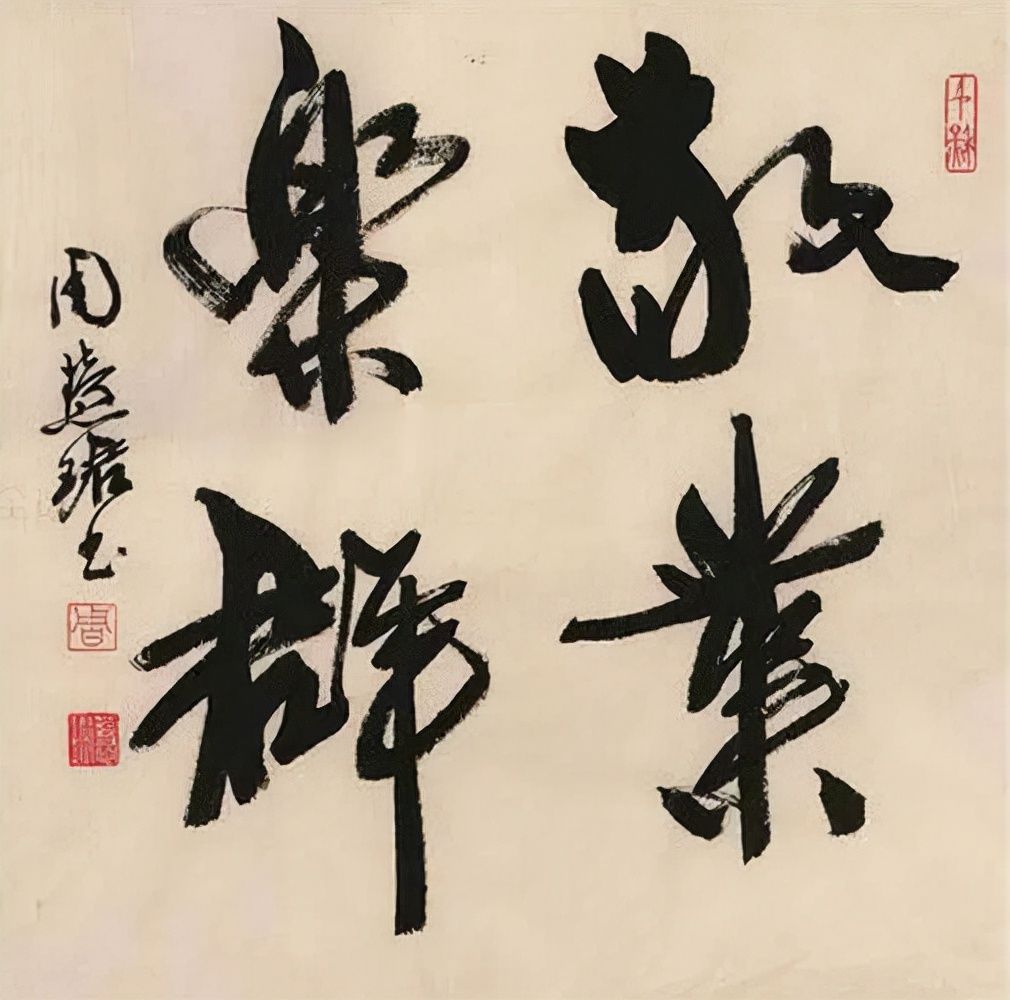 敬業
樂群
周慧珺书